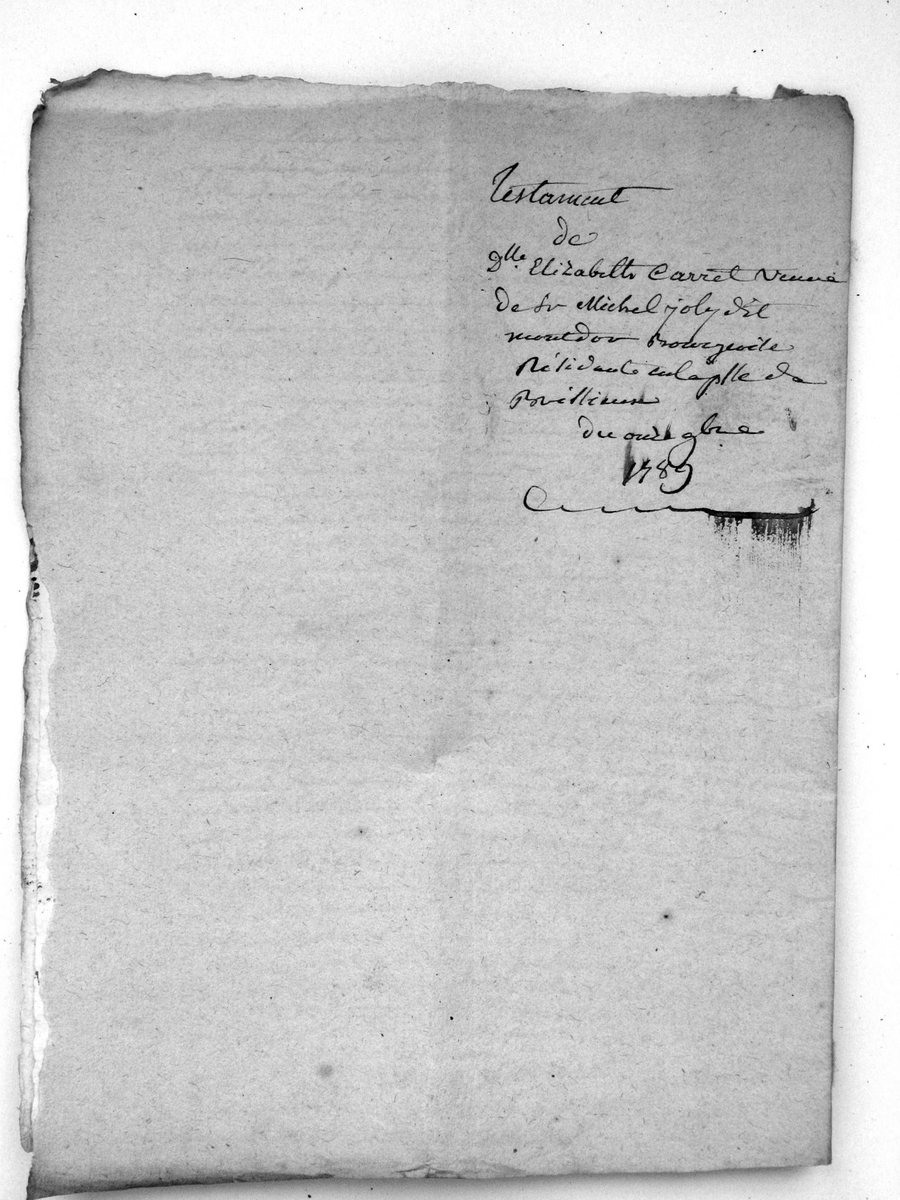 Testament
de
Dlle Elizabeth Carrel Veuve
de Sr Michel joly dit
montdor Bourgeoise
Résidante en la psse de
du onze 9bre
1789